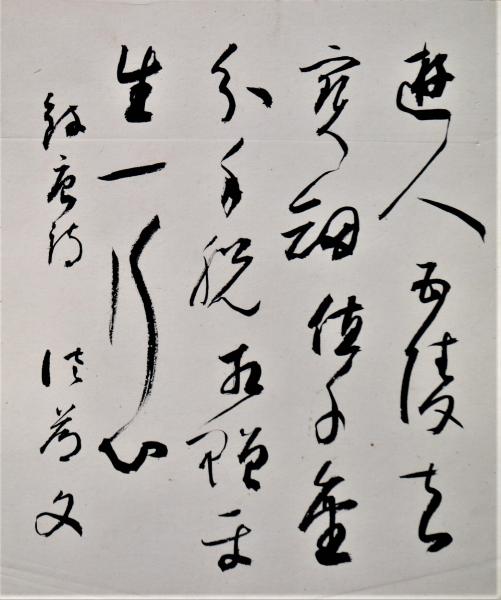 遊人五陵去
寶劍值千金
分手脫相贈平
生一片心
錄唐詩 文